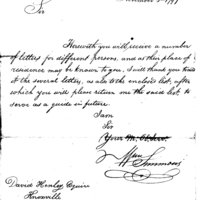 Sir
Herewith you will receive a number
of letters for different persons, and as their place of
residence may be known to you, I will thank you to
the several letters, as also the enclosed list, after
which you will please return me the said list to
serve as a guide in future.
I am
Sir
Your
Wm Simmons
David Henley Esquire
Knoxville